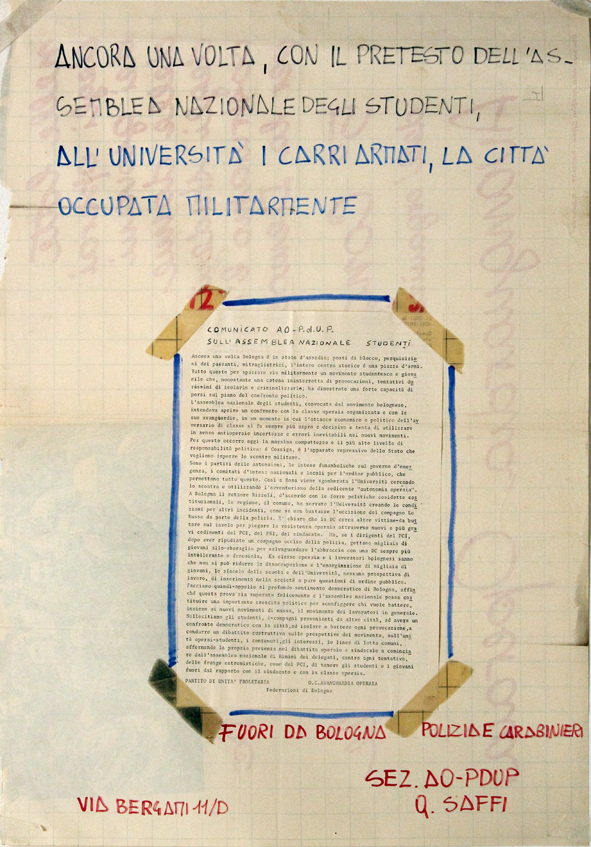 ANCORA UNA VOLTA, CON IL PRETESTO DELL'AS-
SEMBLEA NAZIONALE DEGLI STUDENTI,
ALL'UNIVERSITA' I CARRI ARMATI, LA CITTA'
OCCUPATA MILITARMENTE
COMUNICATO AO-P.d.U.P.
SULL'ASSEMBLEA NAZIONALE STUDENTI
Ancora una volta Bologna è in stato d'assedio: posti di blocco, perquisizio
ni dei passanti, mitragliatrici, l'intero centro storico è una piazza d'armi.
Tutto questo per spazzare via militarmente un movimento studentesco e giova
nile che, nonostante una catena ininterrotta di provocazioni, tentativi da
di isolarlo e criminalizzarlo, ha dimostrato una forte capacità di
porsi sul piano del confronto politico.
L'assemblea nazionale degli studenti, convocata dal movimento bolognese,
intendeva aprire un confronto con la classe operaia organizzata e con le
sue avanguardie, in un momento in cui l'attacco economico e politico dell'av
versario di classe si fa sempre più aspro e decisivo e tenta di utilizzare
in senso antioperaio incertezze e errori inevitabili nei nuovi movimenti.
Per questo occorre oggi la massima compattezza e il più alto livello di
responsabilità politica: è Cossiga, è l'apparato repressivo dello Stato che
vogliono imporre lo scontro militare.
Sono i partiti delle astensioni, le intese fanfaniche sul governo d'emer
genza, i comitati d'intesa nazionali e locali per l'ordine pubblico, che
permettono tutto questo. Così a Roma viene sgomberata l'Università cercando
lo scontro e utilizzando l'avventurismo della sedicente "autonomia operaia".
A Bologna il rettore Rizzoli, d'accordo con le forze politiche cosidette cos
tituzionali, la regione, il comune, ha serrato l'Università creando le condi
zioni per altri incidenti, come se non bastasse l'uccisione del compagno Lo
Russo da parte della polizia. E' chiaro che la DC cerca altre vittime da but
tare sul tavolo per piegare la resistenza operaia attraverso nuovi e più gra
vi cedimenti del PCI, del PSI, del sindacato. Ma, se i dirigenti del PCI,
dopo aver ripudiato un compagno ucciso dalla polizia, gettano migliaia di
giovani allo sbaraglio per salvaguardare l'abbraccio con una DC sempre più
intollerante e forcaiola, la classe operaia e i lavoratori bolognesi sanno
che non si può ridurre la disoccupazione e l'emarginazione di migliaia di
giovani, lo sfacelo della scuola e dell'Università, nessuna prospettiva di
lavoro, di inserimento nella società a pure questioni di ordine pubblico.
Facciamo quindi appello al profondo sentimento democratico di Bologna, affin
chè questa prova sia superata felicemente e l'assemblea nazionale possa cos
tituire una importante crescita politica per sconfiggere chi vuole battere,
insieme ai nuovi movimenti di massa, il movimento dei lavoratori in generale.
Sollecitiamo gli studenti, i compagni provenienti da altre città, ad avere un
confronto democratico con la città, ad isolare e battere ogni provocazione, a
condurre un dibattito costruttivo sulle prospettive del movimento, sull'uni
tà operai-studenti, i contenuti, gli interessi, le linee di lotta comuni,
affermando la propria presenza nel dibattito operaio e sindacale a comincia
re dall'assemblea nazionale di Rimini dei delegati, contro ogni tentativo,
delle frange estremistiche, come del PCI, di tenere gli studenti e i giovani
fuori dal rapporto con il sindacato e con la classe operaia.
PARTITO DI UNITA' PROLETARIA O.C. AVANGUARDIA OPERAIA
Federazioni di Bologna
FUORI DA BOLOGNA POLIZIA E CARABINIERI
SEZ. AO-PDUP
Q. SAFFI
VIA BERGAMI 11/D